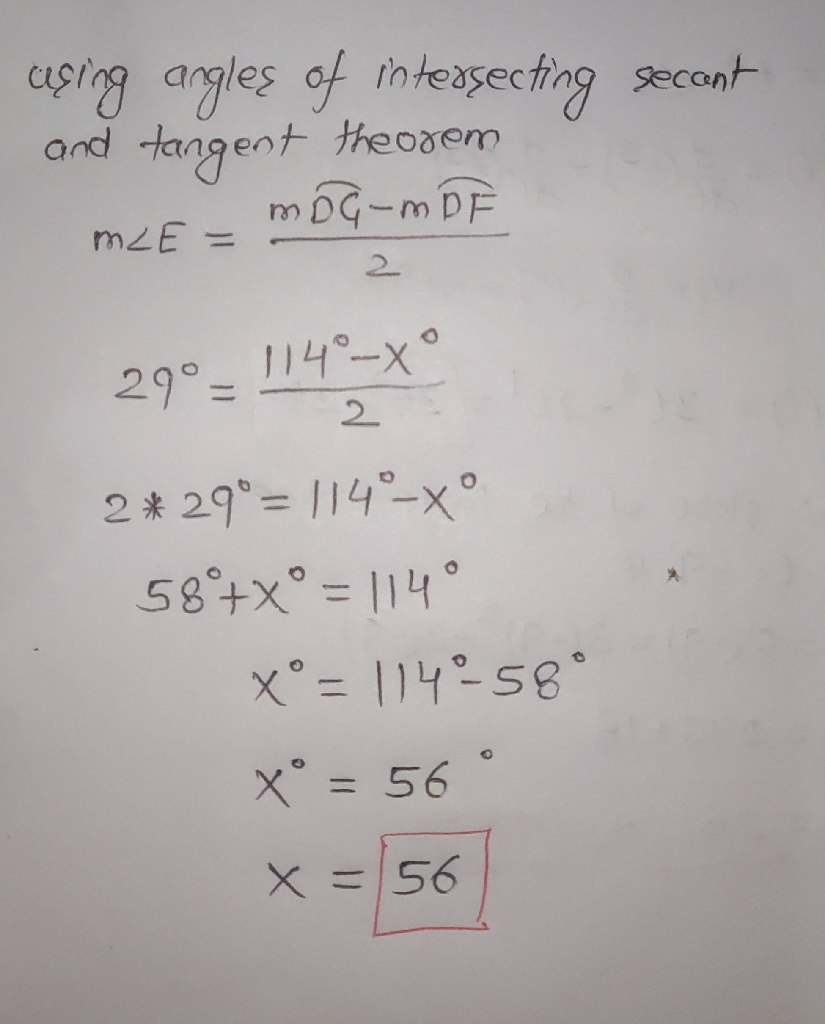 using angles of intersecting secant
and tangent theorem
m∠E = (m⌒DG − m⌒DF) / 2
29° = (114° − x°) / 2
2 * 29° = 114° − x°
58° + x° = 114°
x° = 114° − 58°
x° = 56°
x = 56